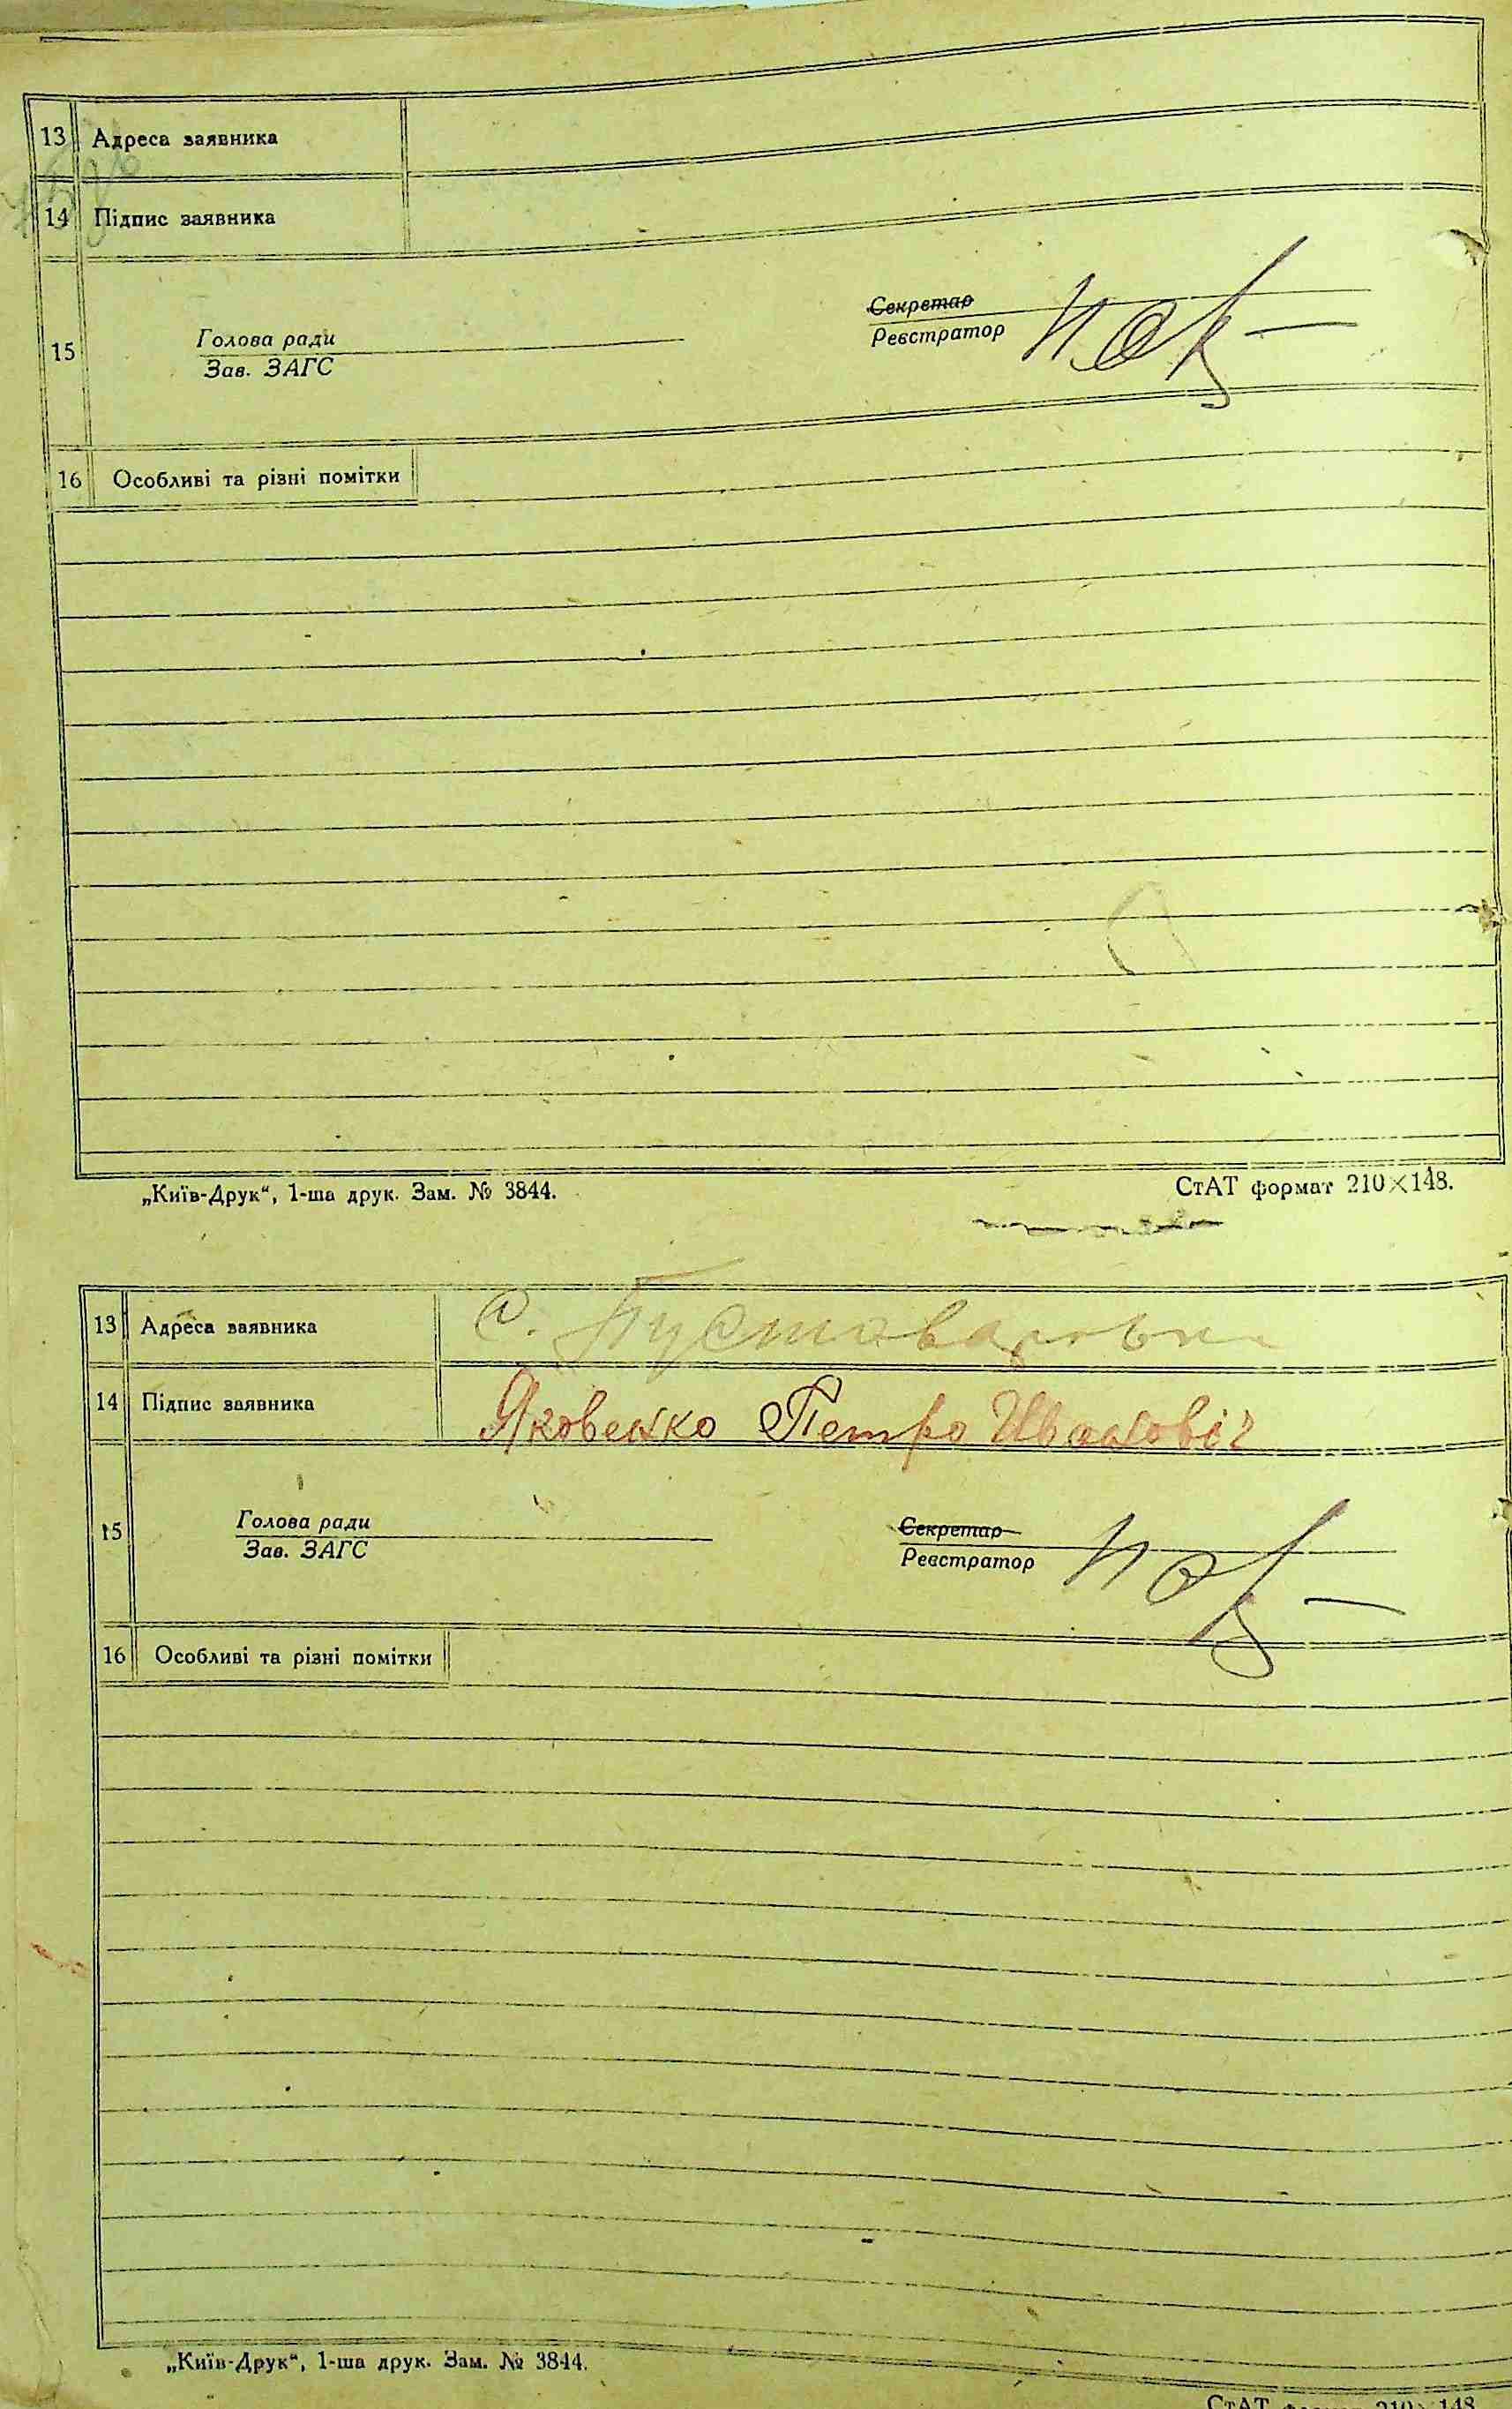 13 Адреса заявника
14 Підпис заявника
Секретар
Реєстратор
15 Голова ради
Зав. ЗАГС
16 Особливі та різні помітки
„Київ-Друк“, 1-ша друк. Зам. № 3844. СтАТ формат 210×148.
13 Адреса заявника с. Пустоваровка
14 Підпис заявника Яковенко Петро Ивановіч
15 Голова ради Секретар
Зав. ЗАГС Реєстратор
16 Особливі та різні помітки
„Київ-Друк“, 1-ша друк. Зам. № 3844.
СтАТ формат 210×148